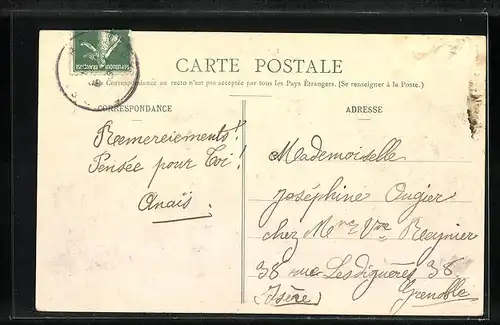 RÉPUBLIQUE FRANÇAISE
CARTE POSTALE
La Correspondance au recto n'est pas acceptée par tous les Pays Étrangers. (Se renseigner à la Poste.)
CORRESPONDANCE
Remerciements!
Pensée pour Toi!
Anaïs.
ADRESSE
Mademoiselle
Joséphine Augier
chez Mme Vve Reynier
38 rue Lesdiguères 38
Grenoble
(Isère)